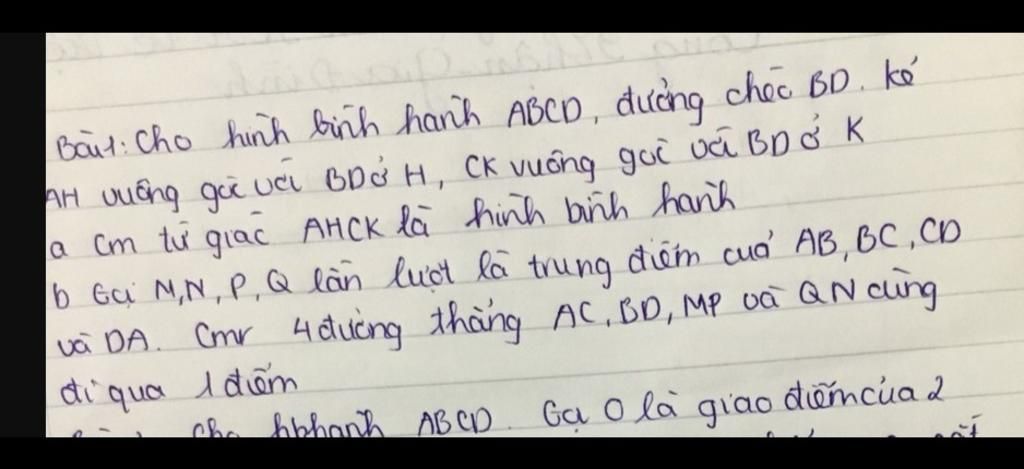 Bài 1: Cho hình bình hành ABCD, đường chéo BD. Kẻ
AH vuông góc với BD ở H, CK vuông góc với BD ở K
a cm tứ giác AHCK là hình bình hành
b Gọi M, N, P, Q lần lượt là trung điểm của AB, BC, CD
và DA. Cmr 4 đường thẳng AC, BD, MP và QN cùng
đi qua 1 điểm
Cho hbhành ABCD. Gọi O là giao điểm của 2